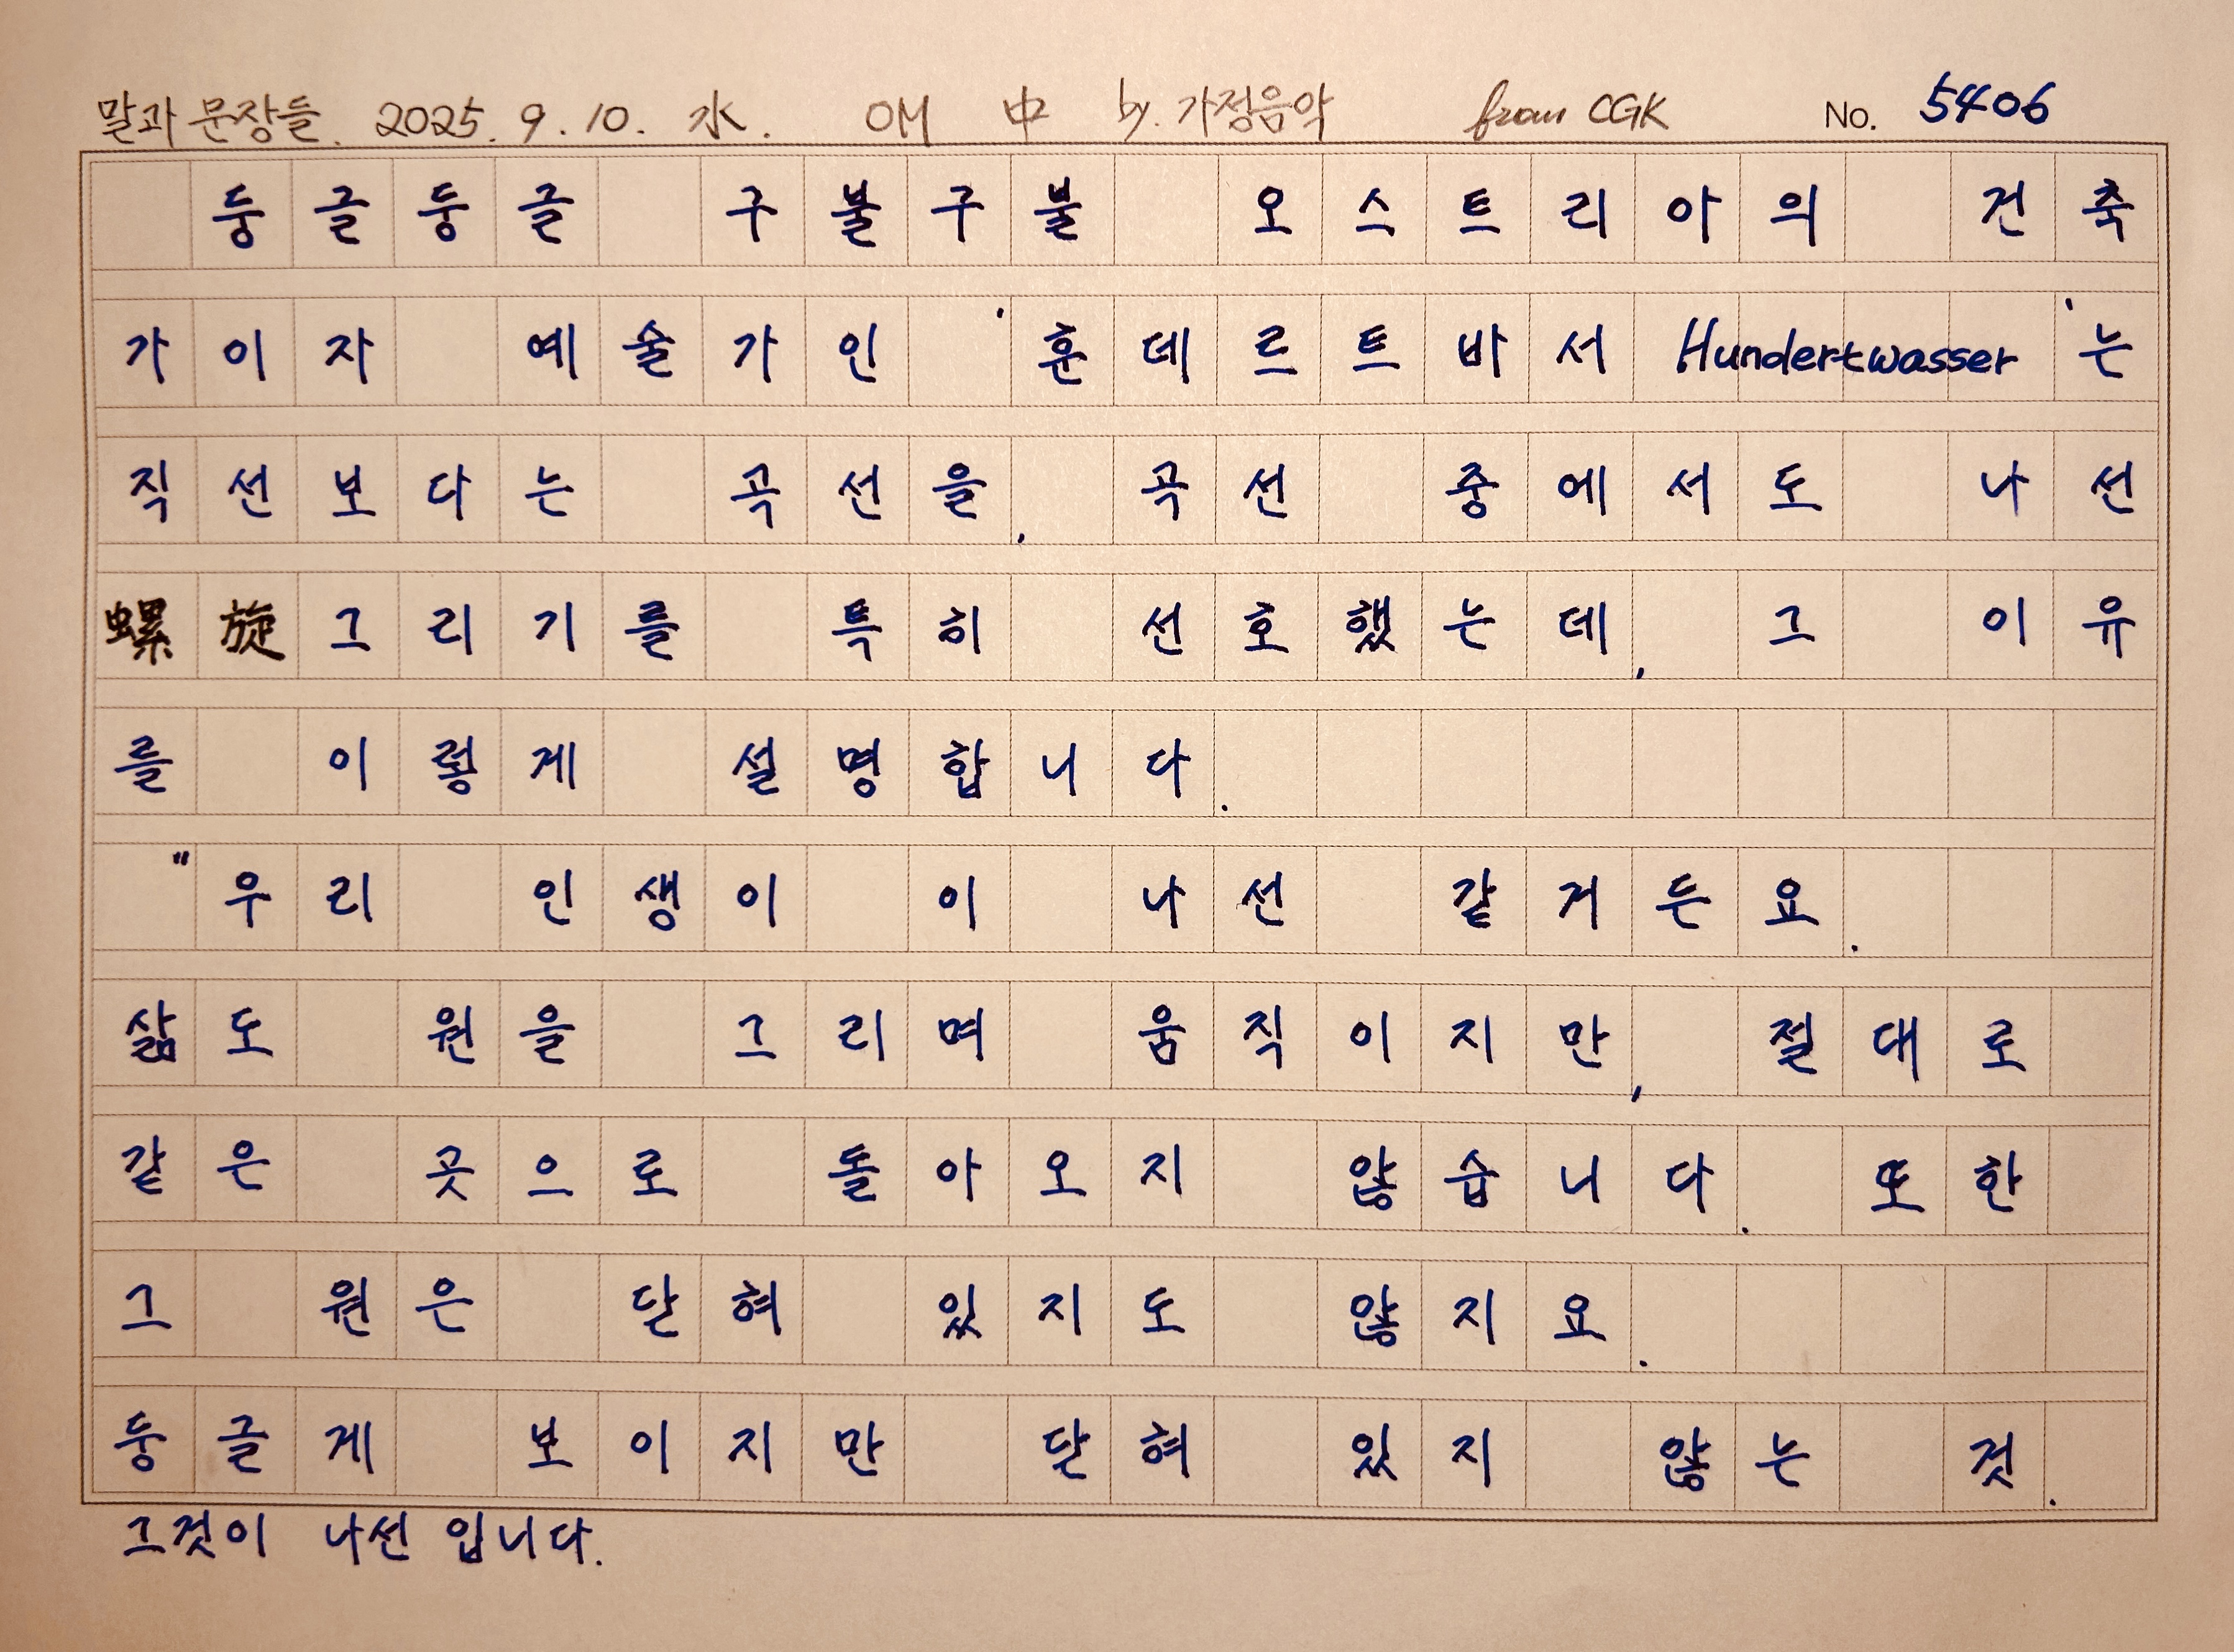 말과 문장들. 2025. 9. 10. 水. OM 中 by. 가정음악 from CGK No. 5406
둥글둥글 구불구불 오스트리아의 건축
가이자 예술가인 '훈데르트바서 Hundertwasser'는
직선보다는 곡선을, 곡선 중에서도 나선
螺旋그리기를 특히 선호했는데, 그 이유
를 이렇게 설명합니다.
"우리 인생이 이 나선 같거든요.
삶도 원을 그리며 움직이지만, 절대로
같은 곳으로 돌아오지 않습니다. 또한
그 원은 닫혀 있지도 않지요.
둥글게 보이지만 닫혀 있지 않는 것.
그것이 나선 입니다.